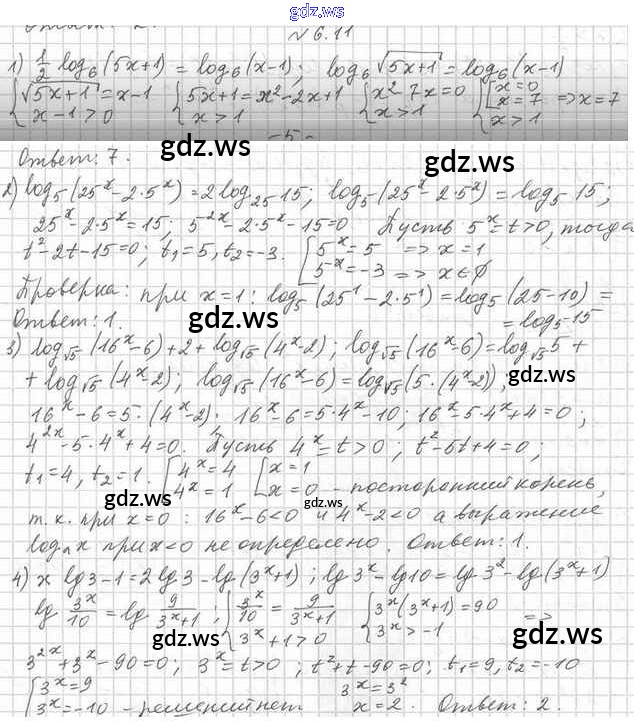 gdz.ws
№ 6.11
1) 1/2 log₆(5x+1) = log₆(x-1); log₆√(5x+1) = log₆(x-1)
{√(5x+1) = x-1 {5x+1 = x²-2x+1 {x² 7x = 0 {[x=0
x-1>0 x>1 x>1 x=7 => x=7
x>1
-5-
Ответ: 7. gdz.ws gdz.ws
2) log₅(25ˣ-2·5ˣ) = 2log₂₅15; log₅(25ˣ-2·5ˣ) = log₅15;
25ˣ-2·5ˣ = 15; 5⁻²ˣ-2·5ˣ-15=0 Пусть 5ˣ=t>0, тогда
t²-2t-15=0; t₁=5, t₂=-3. [5ˣ=5 => x=1
5ˣ=-3 => x∈∅
Проверка: при x=1: log₅(25¹-2·5¹) = log₅(25-10) =
= log₅15
Ответ: 1. gdz.ws
3) log√5(16ˣ-6)+2+log√5(4ˣ-2); log√5(16ˣ-6) = log√5 5 +
+ log√5(4ˣ-2); log√5(16ˣ-6) = log√5(5·(4ˣ-2)); gdz.ws
16ˣ-6=5·(4ˣ-2); 16ˣ-6=5·4ˣ-10; 16ˣ-5·4ˣ+4=0;
4²ˣ-5·4ˣ+4=0. Пусть 4ˣ=t>0; t²-5t+4=0;
t₁=4, t₂=1. [4ˣ=4 [x=1
4ˣ=1 x=0 - посторонний корень,
gdz.ws gdz.ws gdz.ws
т.к. при x=0: 16ˣ-6<0 и 4ˣ-2<0 а выражение
logₙx при x<0 не определено. Ответ: 1.
4) x lg3-1=2lg3-lg(3ˣ+1); lg3ˣ-lg10=lg3²-lg(3ˣ+1)
lg 3ˣ/10 = lg 9/(3ˣ+1); {3ˣ/10 = 9/(3ˣ+1) {3ˣ(3ˣ+1)=90 =>
3ˣ+1>0 3ˣ>-1
gdz.ws gdz.ws
3²ˣ+3ˣ-90=0; 3ˣ=t>0; t²+t-90=0; t₁=9, t₂=-10
[3ˣ=9 3ˣ=3²
3ˣ=-10 - решений нет x=2. Ответ: 2.
gdz.ws